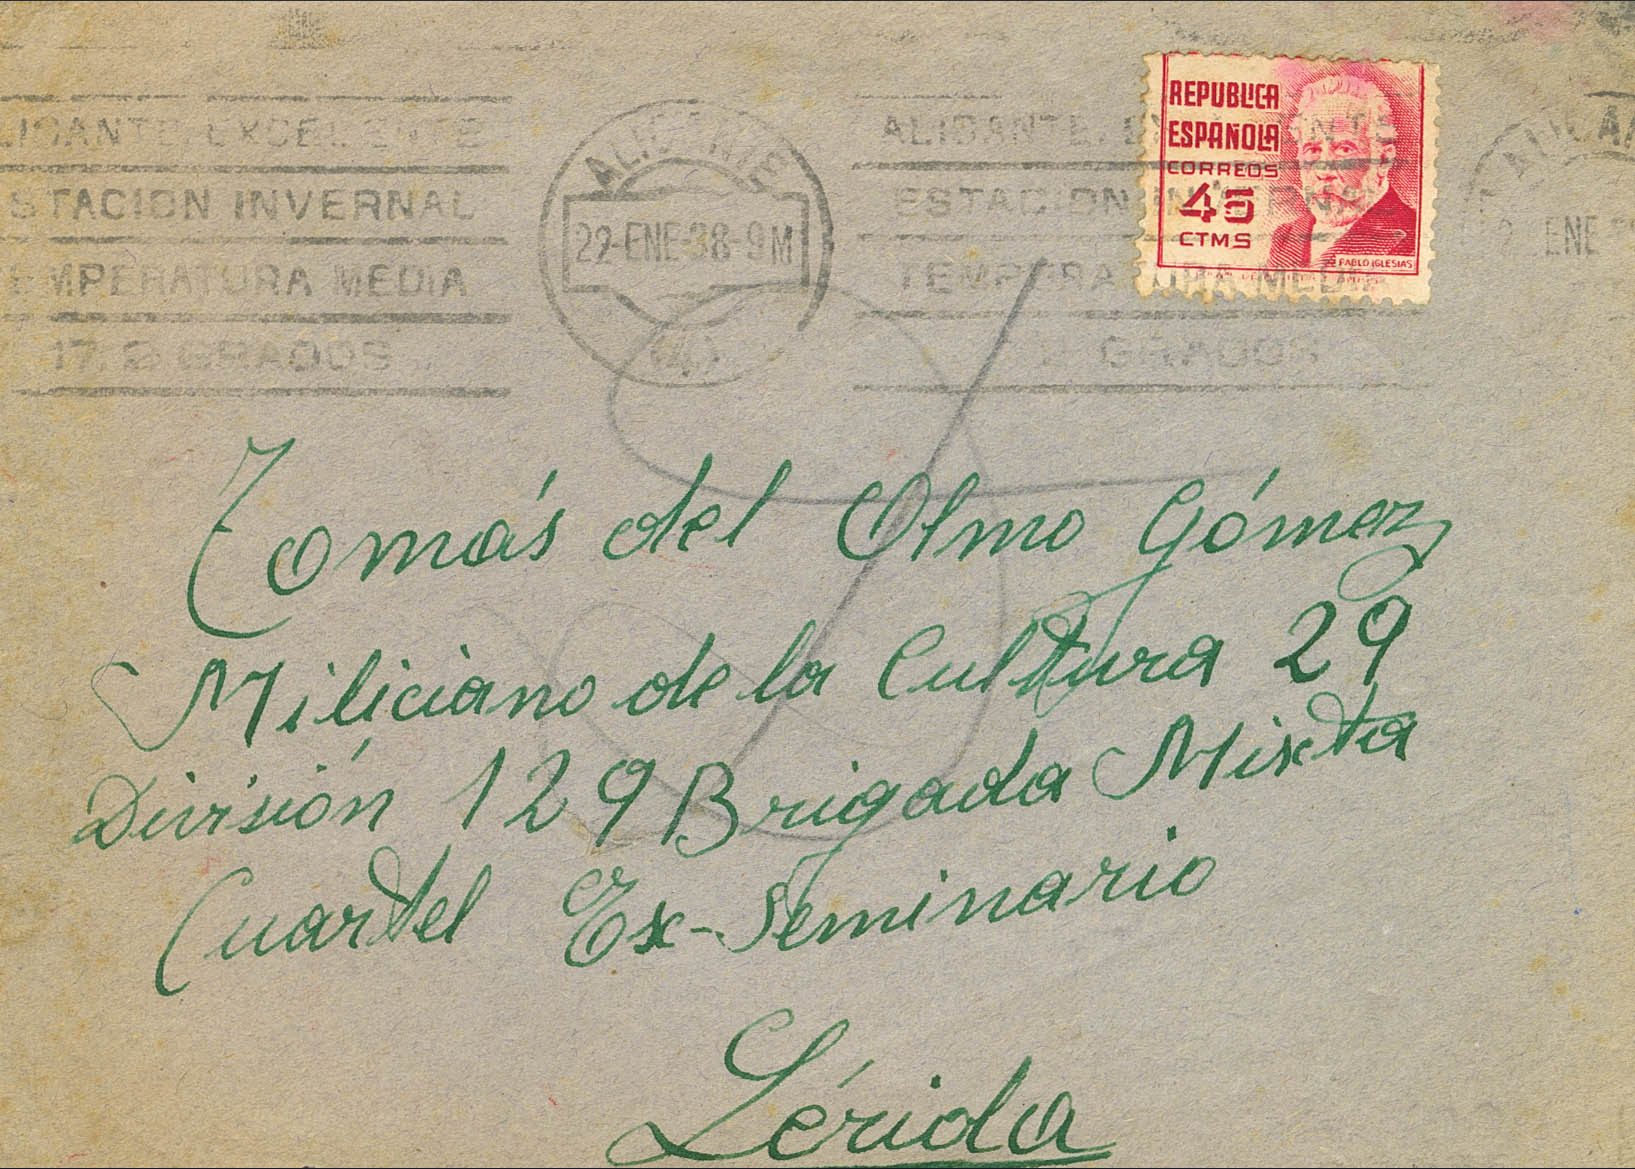 ALICANTE EXCELENTE
ESTACION INVERNAL
TEMPERATURA MEDIA
17,2 GRADOS
ALICANTE
22-ENE-38-9M
ALICANTE, EXCELENTE
ESTACION INVERNAL
TEMPERATURA MEDIA
GRADOS
REPUBLICA
ESPAÑOLA
CORREOS
45
CTMS
PABLO IGLESIAS
ENE
Tomás del Olmo Gómez
Miliciano de la Cultura 29
División 129 Brigada Mixta
Cuartel Ex-Seminario
Lérida